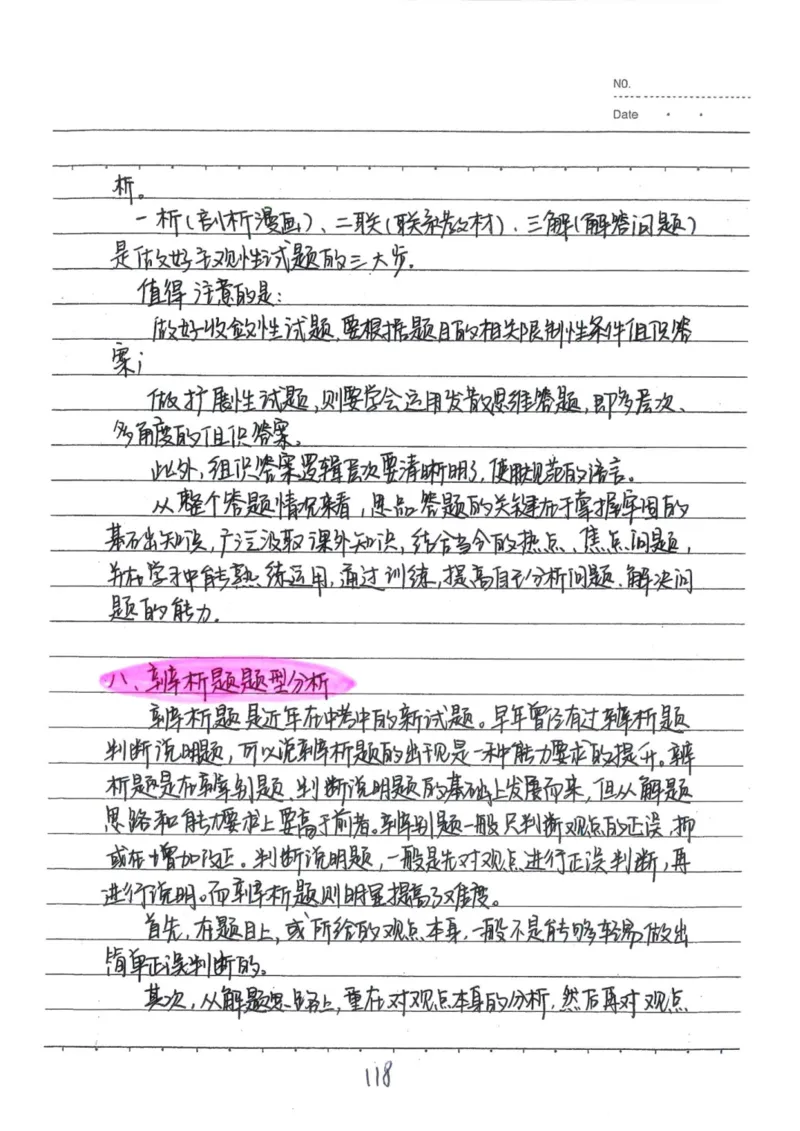 NO.
Date
析。
一析(剖析漫画)、二联(联系教材)、三解(解答问题)
是做好主观性试题的三大步.
值得注意的是:
做好收敛性试题,要根据题目的相关限制性条件组织答
案;
做扩展性试题,则要学会运用发散思维答题,即多层次、
多角度的组织答案。
此外,组织答案逻辑层次要清晰明了,使用规范的语言。
从整个答题情况来看,思品答题的关键在于掌握牢固的
基础知识,广泛汲取课外知识,结合当今的热点、焦点问题,
并在学习中能熟练运用,通过训练,提高自己分析问题、解决问
题的能力.
八、辨析题题型分析
辨析题是近年在中考中的新试题。早年曾经有过辨析题
判断说明题,可以说辨析题的出现是一种能力要求的提升。辨
析题是在辨别题、判断说明题的基础上发展而来,但从解题
思路和能力要求上要高于前者。辨别题一般只判断观点的正误,抑
或在增加改正。判断说明题,一般是先对观点进行正误判断,再
进行说明。而辨析题则明显提高了难度。
首先,在题目上,或所给的观点本身,一般不是能够轻易做出
简单正误判断的。
其次,从解题思路上,重在对观点本身的分析,然后再对观点
118